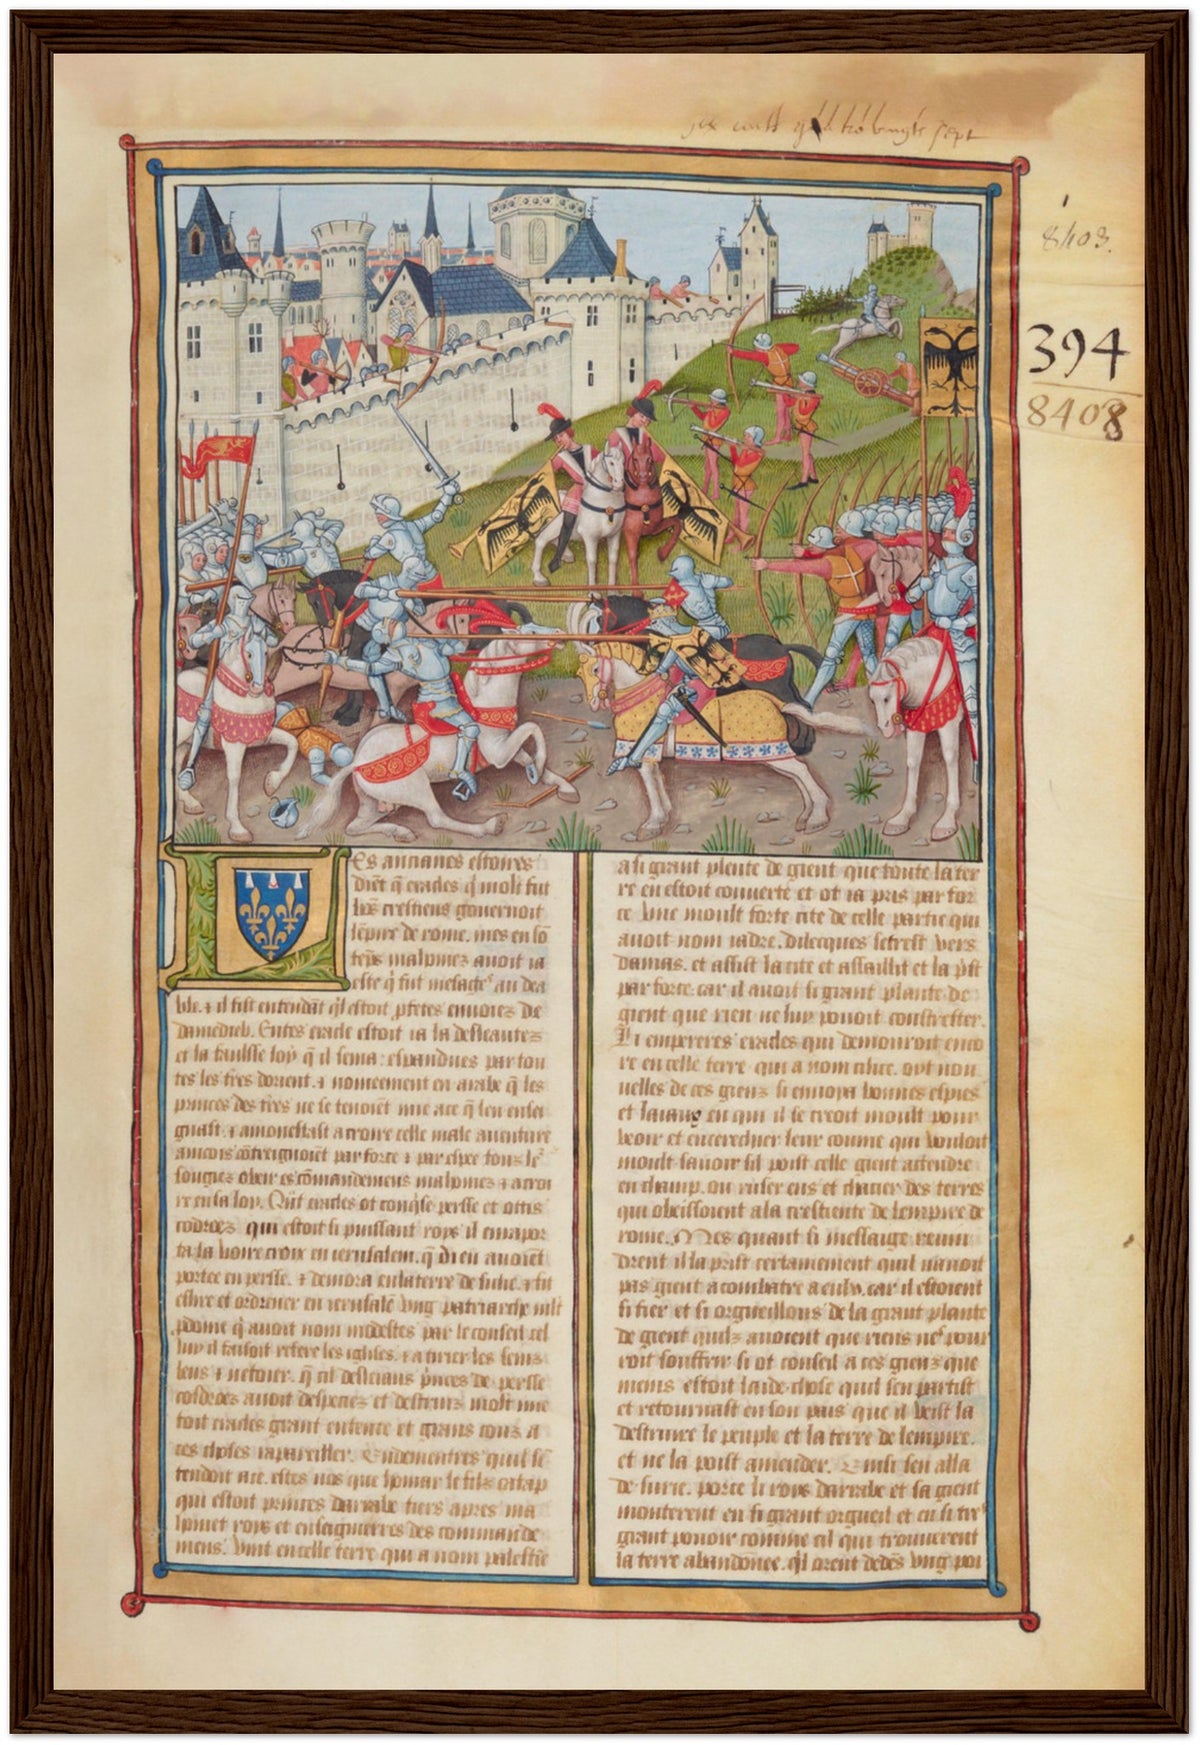 8403.
394
8408
Es ancianes estoires
dient q̃ eracles q̃ molt fut
bõs crestiens gouernoit
lẽpire de rome. mes en sõ
tẽps malpmez auoit ia
este q̃ fut mesage au dea
ble. ⁊ il fist entendãt q̃l estoit pfetes enuoiez de
damedieu. Entes eracle estoit ia la desleautez
et la faulsse loy q̃ il sema. espandues par tou
tes les t̃res dorient. ⁊ nomeement en arabe q̃ les
princes des t̃res ne se tenoiẽt mie a ce q̃ len ensei
gnast. ⁊ amonestast a croire celle male auenture
aincois cõtreignoiẽt par force ⁊ par espee touz le
sougiez obeir es cõmandemens malpmez ⁊ a croi
re en sa loy. Qñt eracles ot conq̃se persse et occis
codroez qui estoit si puissant roys il enrapor
ta la voire croix en ierusalem. q̃ dieu auoiẽt
portee en persse. ⁊ demora en la terre de surie. ⁊ fist
eslire et ordener en ierusalẽ vng patriarche mlt
pdome q̃ auoit nom modestes par le conseil cel
luy il faisoit refere les iglises. ⁊ atirier les sains
leus ⁊ netoier. q̃ cil desleaus p̃nces de persse
cosdroez auoit despeciez et destruiz molt mie
toit eracles grant entente et grans couz a
ces choses rapareillier. Endementres quil se
tendoit a ce. estes vos que homar le filz catap
qui estoit princes darrabe tiers apres ma
homet roys et enseigneeres des commande
mens. vint en celle terre qui a nom palestie
a si grant plente de gient que toute la ter
re en estoit couuerte et ot ia pris par for
ce vne moult forte cite de celle partie qui
auoit nom iadre. Dilecques se trest vers
damas. et assist la cite et assaillit et la p̃st
par force. car il auoit si grant plante de
gient que rien ne luy pouoit constrester.
Li empereres eracles qui demouroit enco
re en celle terre qui a nom cilice. oyt nou
uelles de ces gienz si enuoya bonnes espies
et laiaux en qui il se creoit moult pour
veoir et encerchier leur couine qui vouloit
moult sauoir sil poist celle gient actendre
en champ. ou ruser ens et chacier des terres
qui obeissoient a la crestiente de lempire de
rome. Mes quant si messaige reuin
drent il laprist certainement quil nauoit
pas gient a combatre a eulx. car il estoient
si fier et si orgueillous de la grant plante
de gient quilz auoient que riens nes pour
roit souffrir si ot conseil a ces gienz que
meins estoit laide chose quil sen partist
et retournast en son pais que il veist la
destruire le peuple et la terre de lempire.
et ne la poist amender. Ainsi sen alla
de surie. porce li roys darrabe et sa gient
monterent en si grant orgueil et en si tres
grant pouoir comme cil qui trouuerent
la terre abandonee. q̃l orent dedẽs vng poi